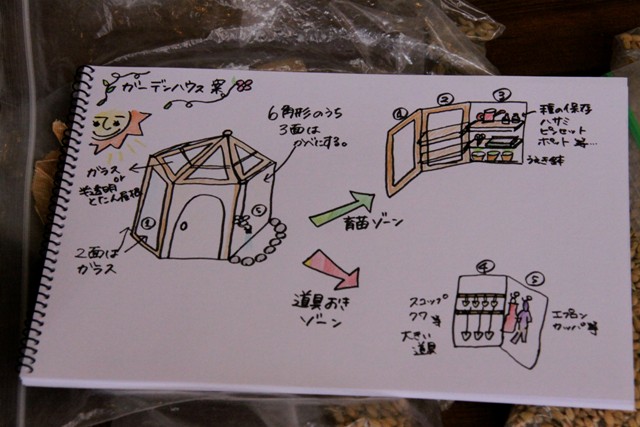 ガーデンハウス案
6角形のうち
3面は
カベにする。
ガラス
or
半透明
とたん屋根
①
⑤
2面は
ガラス
育苗ゾーン
道具おき
ゾーン
①
②
③
種の保存
ハサミ
ピンセット
ポット 等…
うえき鉢
④
⑤
スコップ
クワ 等
大きい
道具
エプロン
カッパ等